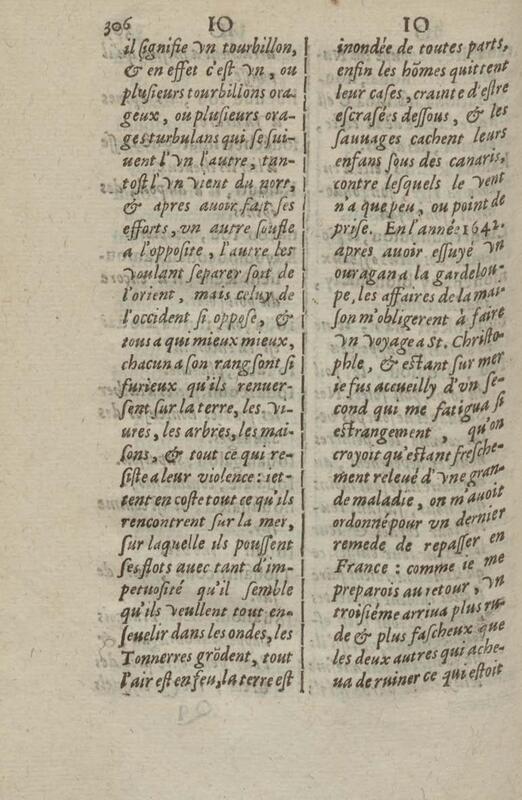 306
IO
il signifie vn tourbillon,
& en effet c'est vn, ou
plusieurs tourbillons ora-
geux, ou plusieurs ora-
ges turbulans qui se sui-
uent l'vn l'autre, tan-
tost l'vn vient du nort,
& apres auoir fait ses
efforts, vn autre soufle
a l'opposite, l'autre les
voulant separer sort de
l'orient, mais celuy de
l'occident si oppose, &
tous a qui mieux mieux,
chacun a son rang sont si
furieux qu'ils renuer-
sent sur la terre, les vi-
ures, les arbres, les mai-
sons, & tout ce qui re-
siste a leur violence: iet-
tent en coste tout ce qu'ils
rencontrent sur la mer,
sur laquelle ils poussent
ses flots auec tant d'im-
petuosité qu'il semble
qu'ils veullent tout en-
seuelir dans les ondes, les
Tonnerres grõdent, tout
l'air est en feu, la terre est
IO
inondée de toutes parts,
enfin les hõmes quittent
leur cases, crainte d'estre
escrasées dessous, & les
sauuages cachent leurs
enfans sous des canaris,
contre lesquels le vent
n'a que peu, ou point de
prise. En l'année 1642.
apres auoir essuyé vn
ouragan a la gardelou-
pe, les affaires de la mai-
son m'obligerent à faire
vn voyage a St. Christo-
phle, & estant sur mer
ie fus accueilly d'vn se-
cond qui me fatigua si
estrangement, qu'on
croyoit qu'estant fresche-
ment releué d'vne gran-
de maladie, on m'auoit
ordonné pour vn dernier
remede de repasser en
France : comme ie me
preparois au retour, vn
troisiéme arriua plus ru-
de & plus fascheux que
les deux autres qui ache-
ua de ruiner ce qui estoit